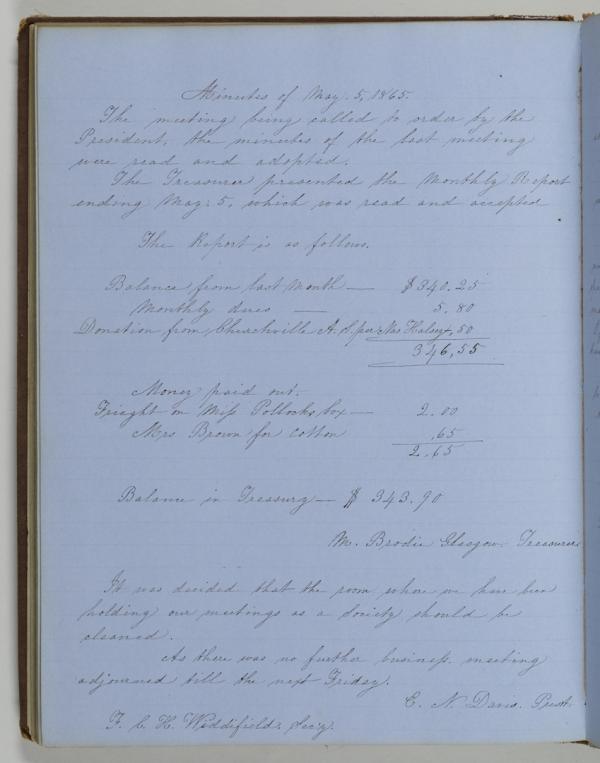 Minutes of May. 5, 1865.
The meeting being called to order by the
President, the minutes of the last meeting
were read and adopted.
The Treasurer presented the Monthly Report
ending May. 5, which was read and accepted
The Report is as follows.
Balance from last Month — $340.25
Monthly dues — 5.80
Donation from Churchville A. S. per Mrs Halsey .50
346,55
Money paid out.
Frieght on Miss Pollocks box — 2.00
Mrs Brown for cotton .65
2.65
Balance in Treasury — $ 343.90
M. Brodie Glasgow. Treasurer
It was decided that the room where we have been
holding our meetings as a Society should be
cleaned.
As there was no further business. meeting
adjourned till the next Friday.
C. N. Davis. Prest.
F. C. H. Widdifield, Sec'y.